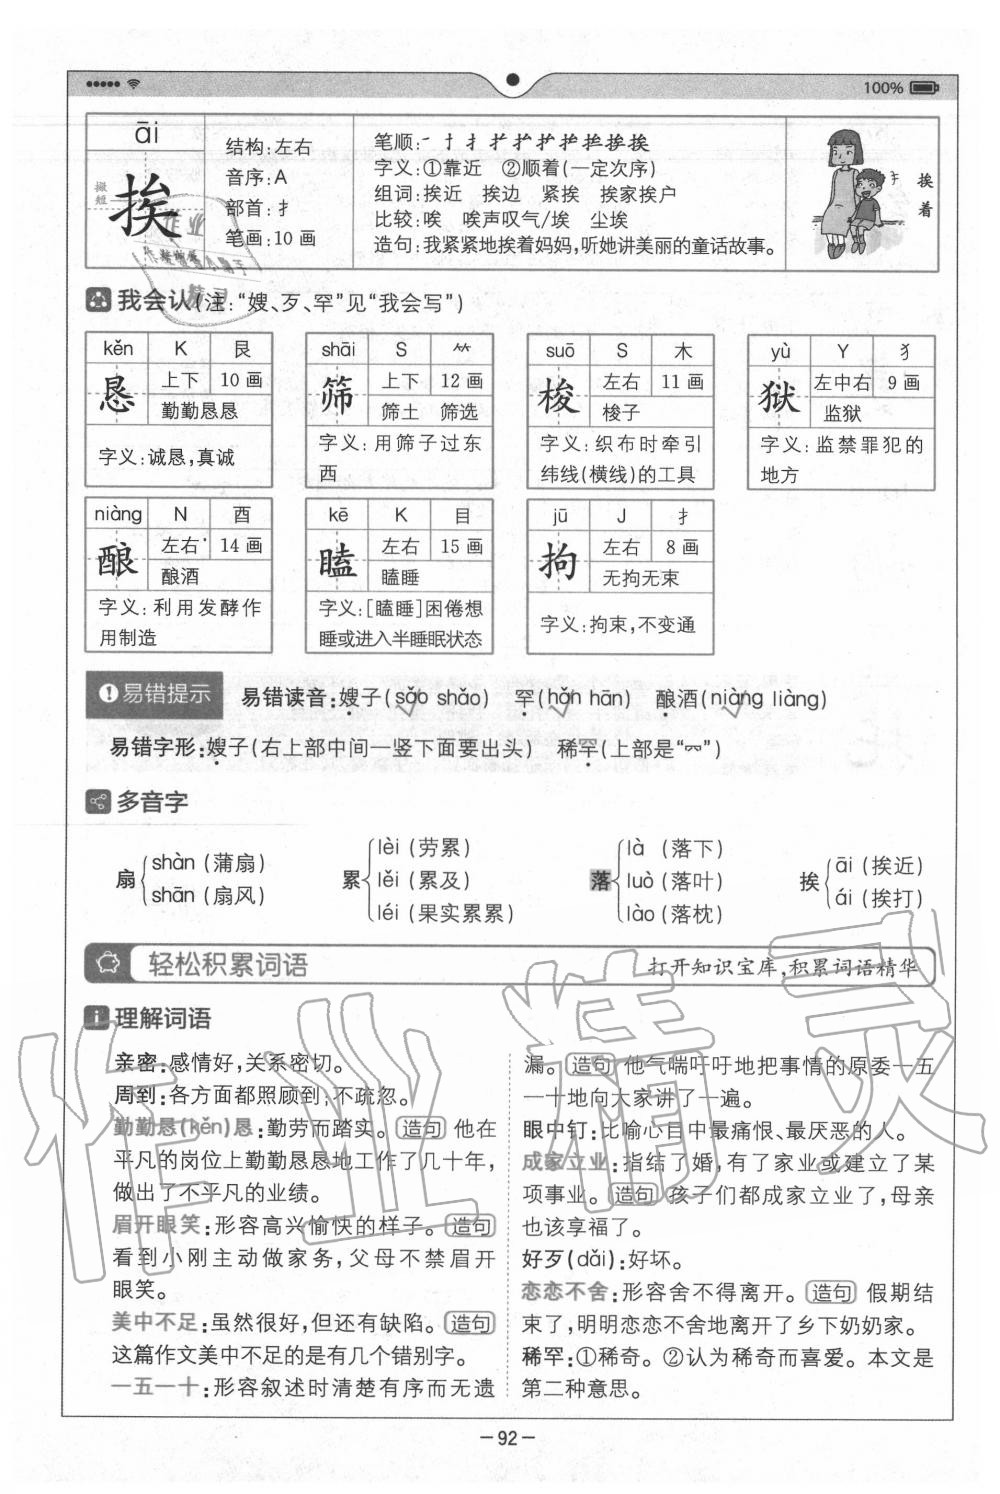 100%
āi
挨
撇短
结构:左右
音序:A
部首:扌
笔画:10 画
笔顺:
字义:①靠近 ②顺着(一定次序)
组词:挨近 挨边 紧挨 挨家挨户
比较:唉 唉声叹气/埃 尘埃
造句:我紧紧地挨着妈妈,听她讲美丽的童话故事。
挨着
我会认(注:“嫂、歹、罕”见“我会写”)
kěn K 艮
恳 上下 10 画
勤勤恳恳
字义:诚恳,真诚
shāi S ⺮
筛 上下 12 画
筛土 筛选
字义:用筛子过东
西
suō S 木
梭 左右 11 画
梭子
字义:织布时牵引
纬线(横线)的工具
yù Y 犭
狱 左中右 9 画
监狱
字义:监禁罪犯的
地方
niàng N 酉
酿 左右 14 画
酿酒
字义:利用发酵作
用制造
kē K 目
瞌 左右 15 画
瞌睡
字义:[瞌睡]困倦想
睡或进入半睡眠状态
jū J 扌
拘 左右 8 画
无拘无束
字义:拘束,不变通
易错提示 易错读音:嫂子(sǎo shǎo) 罕(hǎn hān) 酿酒(niàng liàng)
易错字形:嫂子(右上部中间一竖下面要出头) 稀罕(上部是“罒”)
多音字
扇 shàn (蒲扇) shān (扇风)
累 lèi (劳累) lěi (累及) léi (果实累累)
落 là (落下) luò (落叶) lào (落枕)
挨 āi (挨近) ái (挨打)
轻松积累词语 打开知识宝库,积累词语精华
理解词语
亲密:感情好,关系密切。
周到:各方面都照顾到,不疏忽。
勤勤恳(kěn)恳:勤劳而踏实。造句 他在
平凡的岗位上勤勤恳恳地工作了几十年,
做出了不平凡的业绩。
眉开眼笑:形容高兴愉快的样子。造句
看到小刚主动做家务,父母不禁眉开
眼笑。
美中不足:虽然很好,但还有缺陷。造句
这篇作文美中不足的是有几个错别字。
一五一十:形容叙述时清楚有序而无遗
漏。造句 他气喘吁吁地把事情的原委一五
一十地向大家讲了一遍。
眼中钉:比喻心目中最痛恨、最厌恶的人。
成家立业:指结了婚,有了家业或建立了某
项事业。造句 孩子们都成家立业了,母亲
也该享福了。
好歹(dǎi):好坏。
恋恋不舍:形容舍不得离开。造句 假期结
束了,明明恋恋不舍地离开了乡下奶奶家。
稀罕:①稀奇。②认为稀奇而喜爱。本文是
第二种意思。
作业精灵
–92–